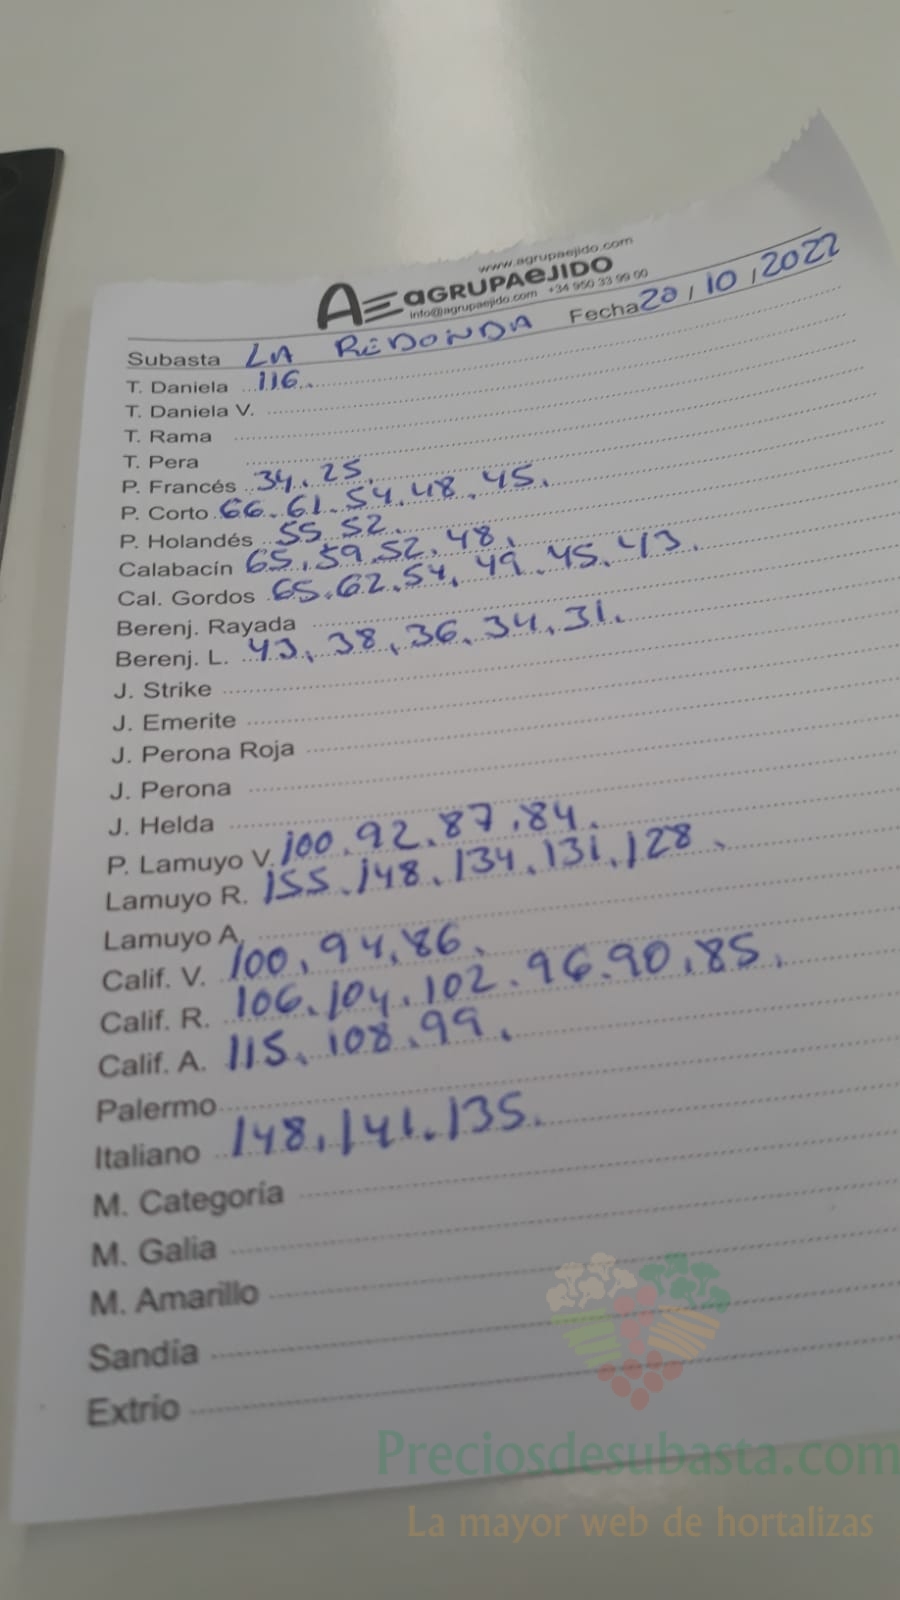 www.agrupaejido.com
AE aGRUPAeJIDO
info@agrupaejido.com +34 950 33 99 00
Subasta LA REDONDA Fecha 20/10/2022
T. Daniela 116.
T. Daniela V.
T. Rama
T. Pera
P. Francés 34. 25.
P. Corto 66. 61. 54. 48. 45.
P. Holandés 55. 52.
Calabacín 65. 59. 52. 48.
Cal. Gordos 65. 62. 54. 49. 45. 43.
Berenj. Rayada
Berenj. L. 43. 38. 36. 34. 31.
J. Strike
J. Emerite
J. Perona Roja
J. Perona
J. Helda
P. Lamuyo V. 100. 92. 87. 84.
Lamuyo R. 155. 148. 134. 131. 128.
Lamuyo A.
Calif. V. 100. 94. 86.
Calif. R. 106. 104. 102. 96. 90. 85.
Calif. A. 115. 108. 99.
Palermo
Italiano 148. 141. 135.
M. Categoría
M. Galia
M. Amarillo
Sandia
Extrio
Preciosdesubasta.com
La mayor web de hortalizas